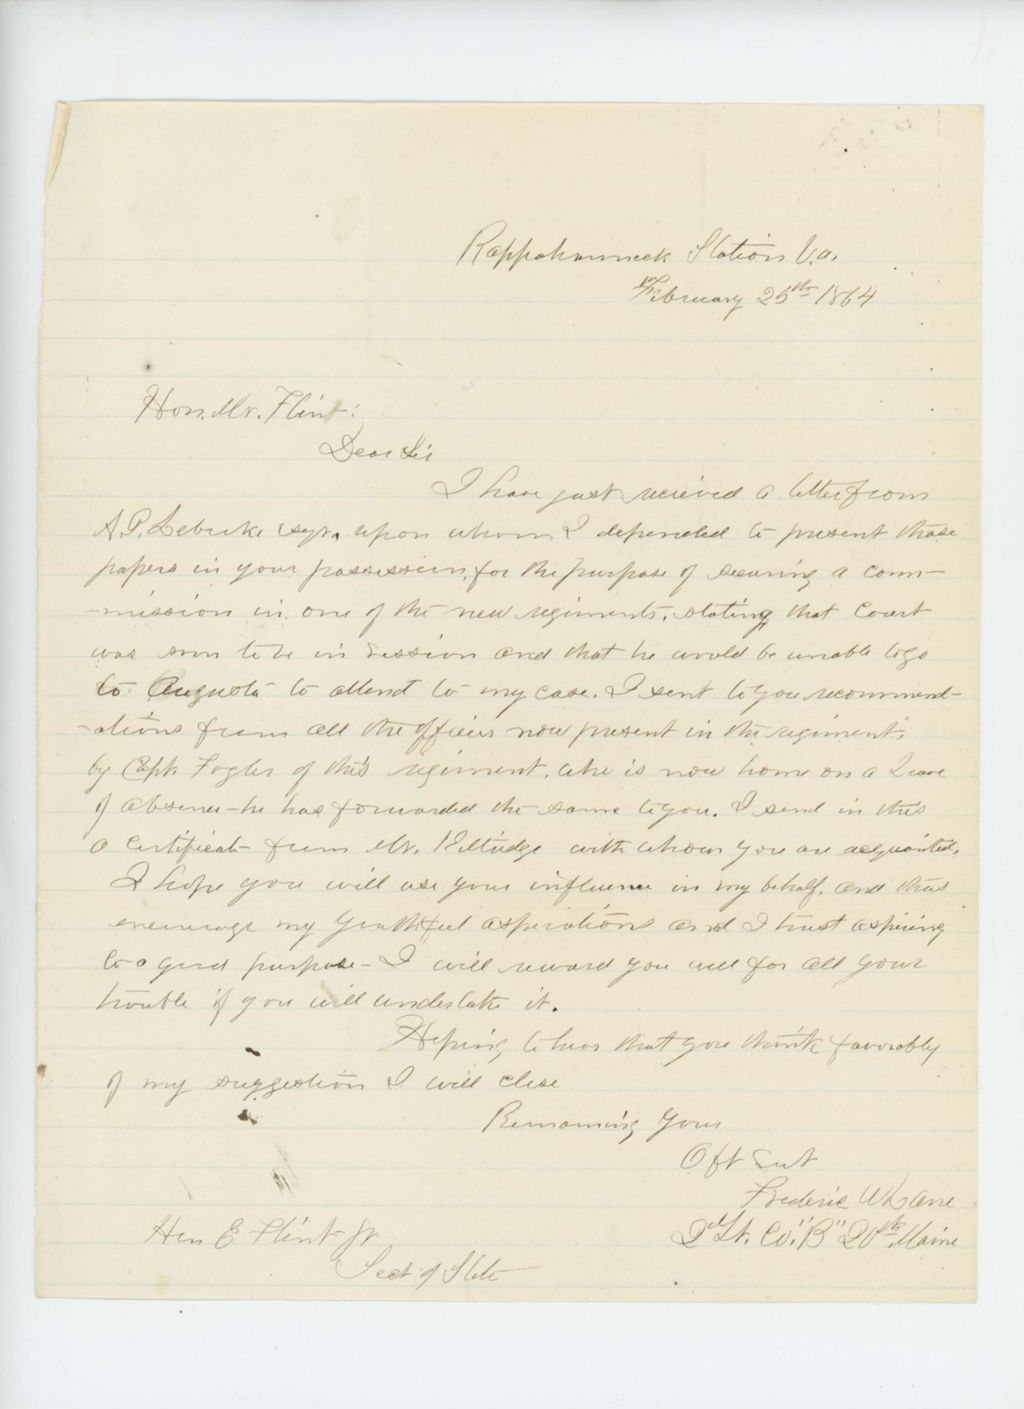 Rappahannock Station Va.
February 25th 1864
Hon. Mr. Flint:
Dear Sir
I have just recieved a letter from
A.P. upon whom I depended to present those
papers in your possession, for the purpose of securing a com-
-mission in one of the new regiments, stating that Court
was soon to be in session and that he would be unable to go
to Augusta to attend to my case. I sent to you recommend-
-ations from all the officers now present in the regiment,
by Capt. Fogler of this regiment, who is now home on a Leave
of absence - he has forwarded the same to you. I send in this
a certificate from Mr. Kittridge with whom you are acquainted.
I hope you will use your influence in my behalf, and thus
encourage my youthful aspirations and I trust aspiring
to a good purpose - I will reward you well for all your
trouble if you will undertake it.
Hoping to hear that you think favorably
of my suggestion I will close
Remaining Yours
Obt Svt
Frederic W Lane
2d Lt. Co. "B" 20th Maine
Hon E Flint Jr
Sect of State